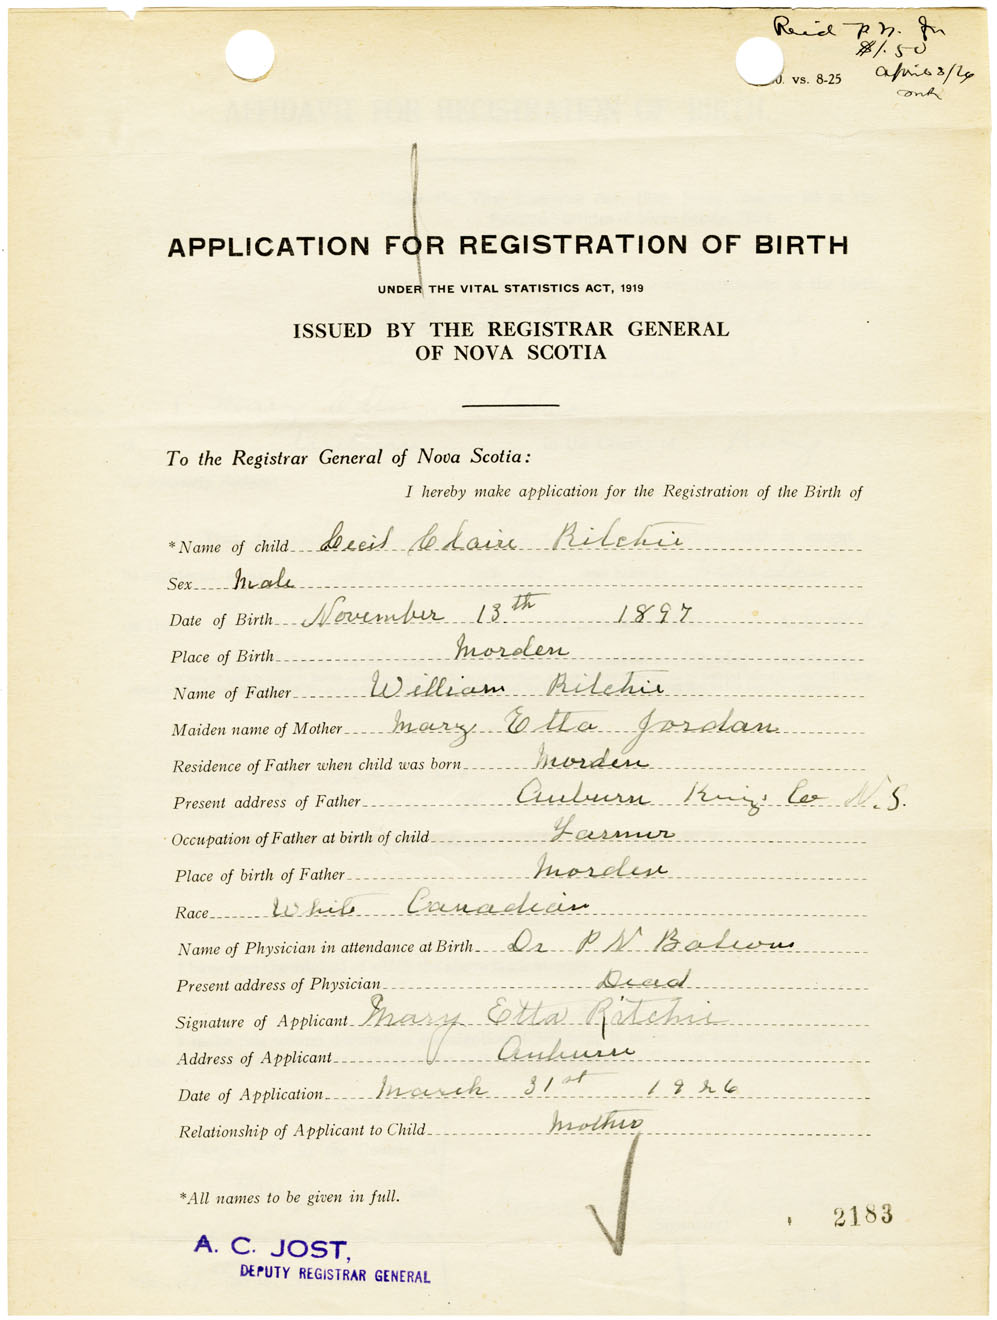 Reid P. N. Jr
$1.50
0. vs. 8-25
April 3/26
APPLICATION FOR REGISTRATION OF BIRTH
UNDER THE VITAL STATISTICS ACT, 1919
ISSUED BY THE REGISTRAR GENERAL
OF NOVA SCOTIA
To the Registrar General of Nova Scotia:
I hereby make application for the Registration of the Birth of
*Name of child Cecil Claire Ritchie
Sex Male
Date of Birth November 13th 1897
Place of Birth Morden
Name of Father William Ritchie
Maiden name of Mother Mary Etta Jordan
Residence of Father when child was born Morden
Present address of Father Auburn Kings Co N.S.
Occupation of Father at birth of child Farmer
Place of birth of Father Morden
Race White Canadian
Name of Physician in attendance at Birth Dr P N Balcom
Present address of Physician Dead
Signature of Applicant Mary Etta Ritchie
Address of Applicant Auburn
Date of Application March 31st 1926
Relationship of Applicant to Child Mother
*All names to be given in full.
2183
A. C. JOST,
DEPUTY REGISTRAR GENERAL